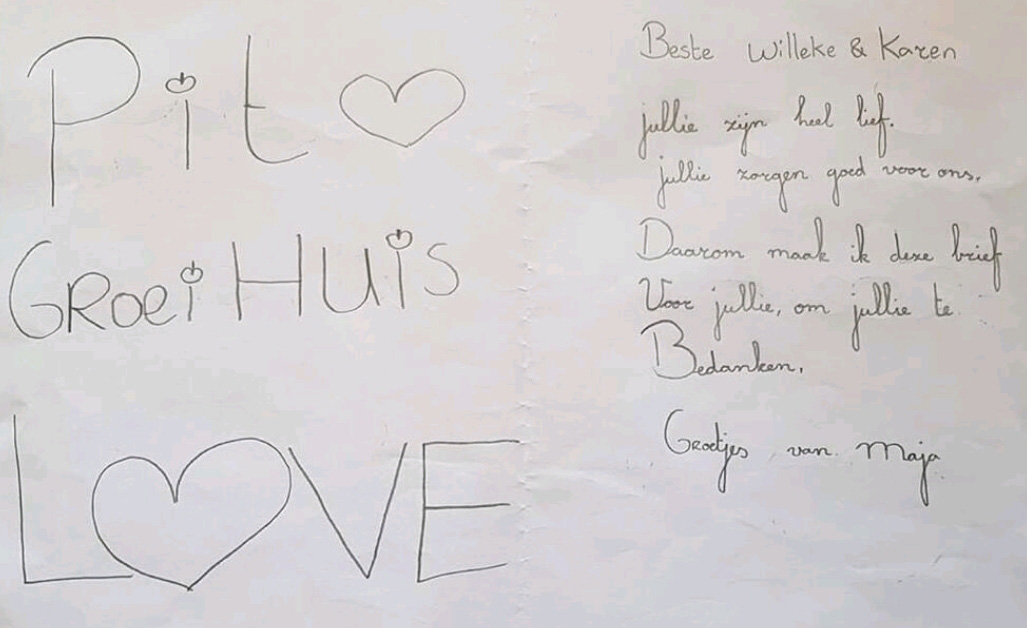 Pit
GRoei HUis
LOVE
Beste Willeke & Karen
jullie zijn heel lief.
jullie zorgen goed voor ons.
Daarom maak ik deze brief
Voor jullie, om jullie te
Bedanken.
Groetjes van Maja